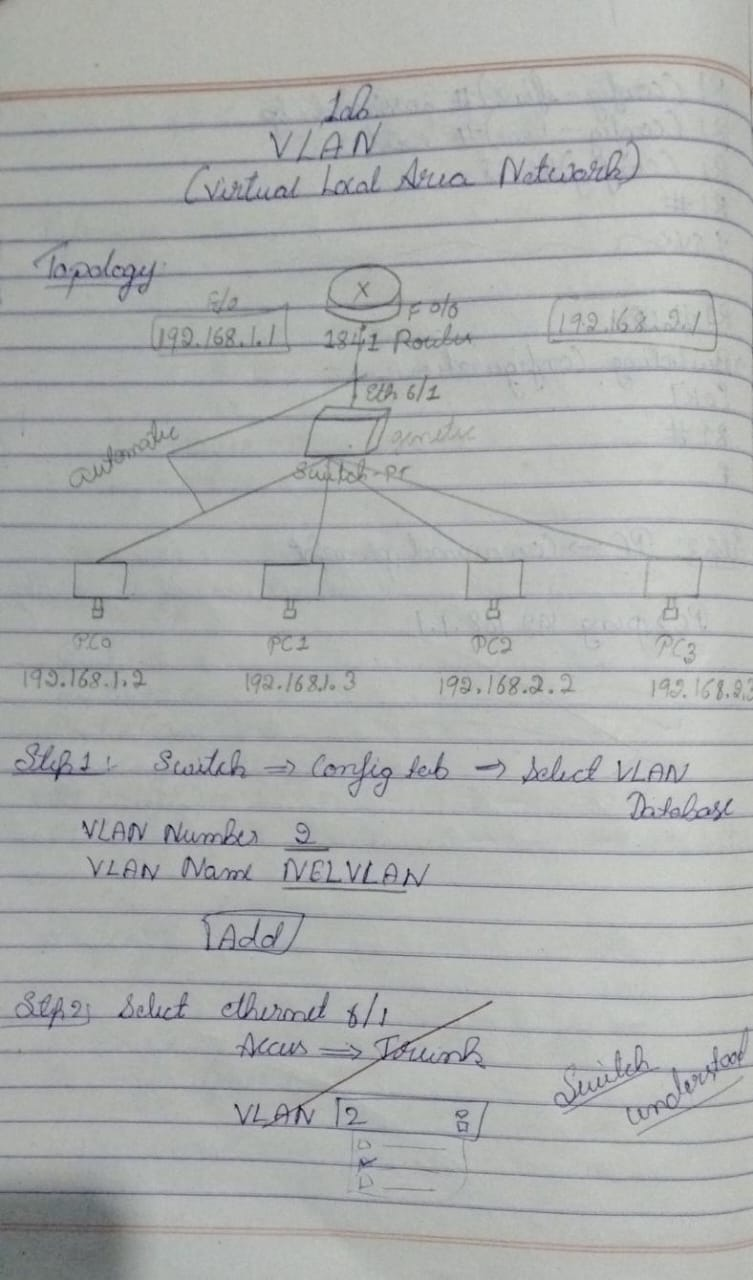 Lab
VLAN
(Virtual Local Area Network)
Topology:
F 0/0
192.168.1.1
1841 Router
192.168.2.1
Eth 6/1
automatic
generic
Switch-PT
PC0
PC1
PC2
PC3
192.168.1.2
192.168.1.3
192.168.2.2
192.168.2.3
Step 1: Switch ⇒ Config tab → Select VLAN
Database
VLAN Number 2
VLAN Name NELVLAN
Add
Step 2; Select ethernet 6/1
Access ⇒ Trunk
VLAN 2
Switch
understood